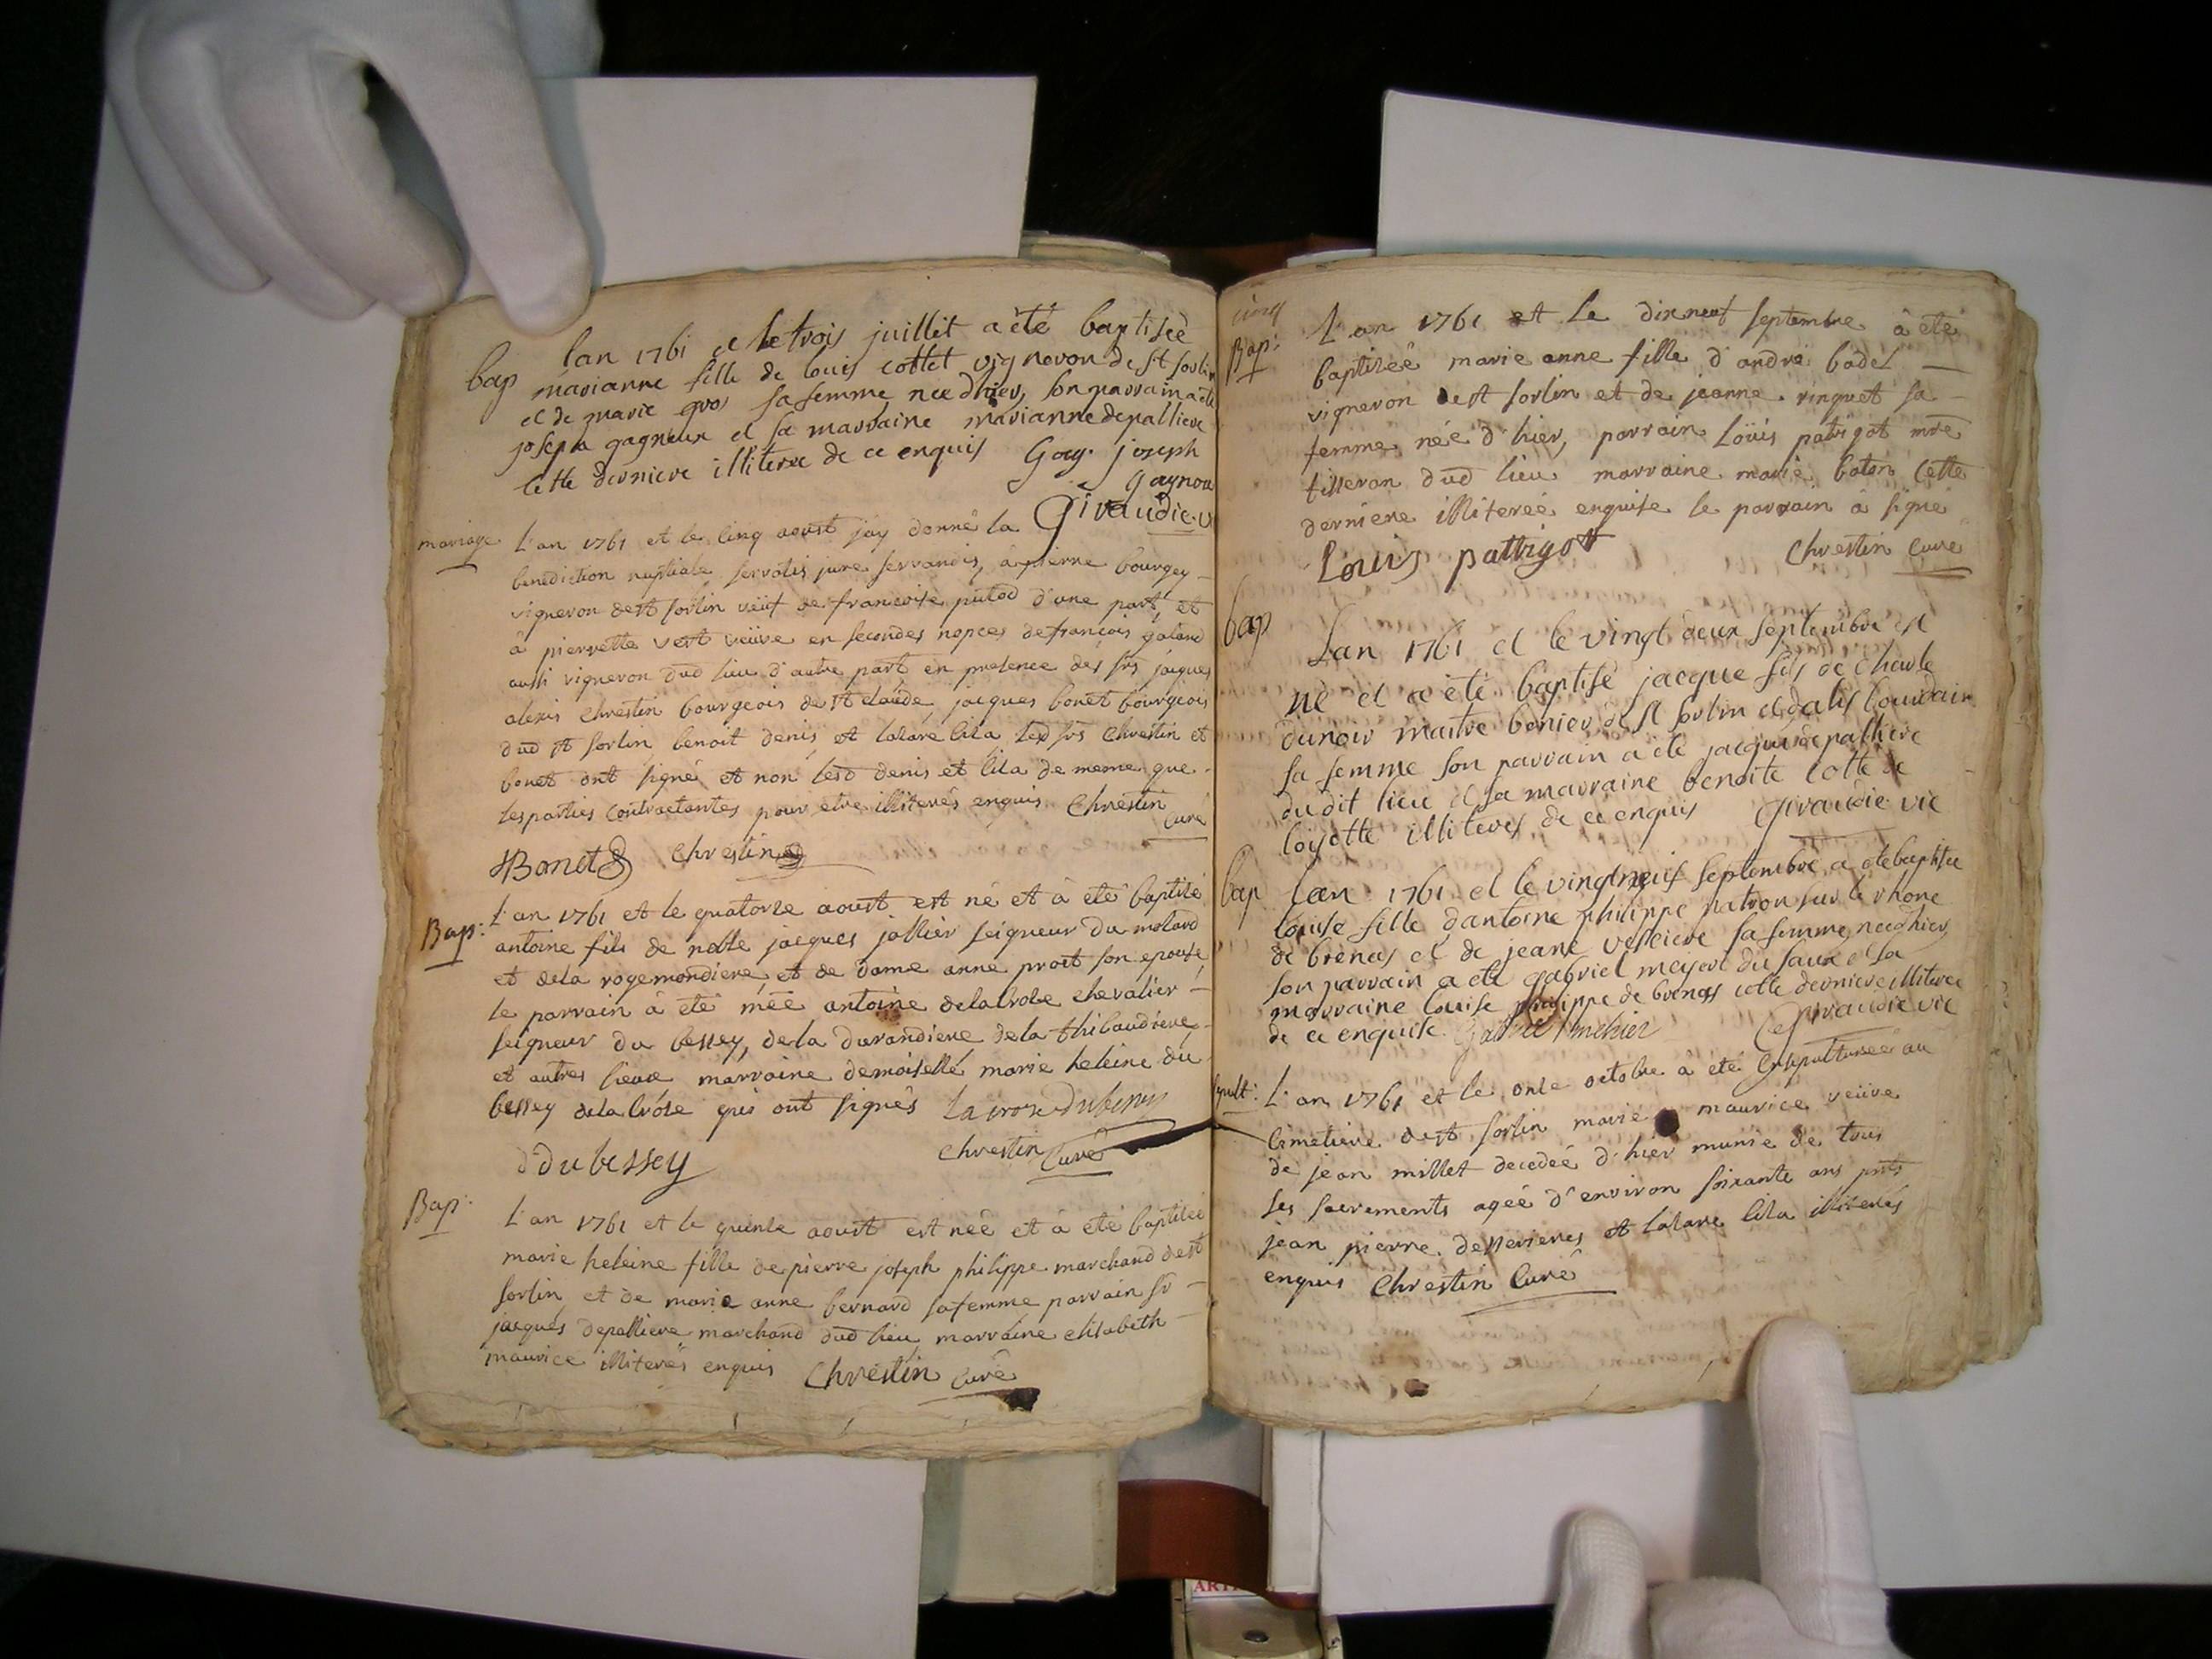 bap
lan 1761 et le trois juillet a été baptisée
marianne fille de louis cottet vigneron de st sorlin
et de marie gros sa femme nee dhier, son parrain a été
joseph gagneux et sa marraine marianne depalliere
cette derniere illiterée de ce enquis Gag. joseph
gagnou
Giraudie. v
mariage
L'an 1761 et le cinq aoust jay donné la
benediction nuptiale servatis jure servandis, à pierre bourgey
vigneron de st sorlin veüf de francoise putod d'une part, et
à pierrette vert veüve en secondes nopces de francois galand
aussi vigneron dud lieu d'autre part en presence des srs jacques
alexis Chrestin bourgeois de st claude jacques bonet bourgeois
dud st sorlin benoit denis et lazare lila lesd srs Chrestin et
bonet ont signé et non lesd denis et lila de meme que
les parties contractantes pour etre illiterés enquis. Chrestin
Curé
Bonet Chrestin
Bap:
L'an 1761 et le quatorze aoust est né et à eté baptisé
antoine fils de noble jacques jallier seigneur du molard
et de la rogemondiere, et de dame anne prost son epouse,
le parrain à eté mre antoine delacroze chevalier
seigneur du bessey, de la durandiere de la thibaudiere
et autres lieux marraine demoiselle marie heleine du
bessey delacroze qui ont signés Lacroze dubessey
d dubessey
Chrestin Curé
Bap:
L'an 1761 et le quinze aoust est neé et à eté baptisée
marie heleine fille de pierre joseph philippe marchand de st
sorlin et de marie anne bernard sa femme parrain sr
jacques depalliere marchand dud lieu marraine elisabeth
maurice illiterés enquis Chrestin Curé
cinq
Bap:
L'an 1761 et le dix neuf septembre à eté
baptiseé marie anne fille d'andré badel
vigneron de st sorlin et de jeanne ringuet sa
femme née d'hier, parrain Loüis patrigot mre
tisseran dud lieu marraine marie baton cette
derniere illitereé enquise le parrain à signé
Louis pattrigot Chrestin Curé
bap
Lan 1761 et le vingt deux septembre est
né et a été baptisé jacque fils de charle
dunoir maitre de st sorlin et dalis bourdain
sa femme son parrain a été jacque depalliere
du dit lieu et sa marraine benoite cotte de
loisette illiteres de ce enquis Giraudie vic
bap
lan 1761 et le vingt neuf septembre a été baptisée
louise fille dantoine philippe patron sur le rhone
de brenas et de jeane vessiere sa femme nee dhier,
son parrain a été gabriel du saux et sa
marraine louise philippe de brenas cette derniere illiteree
de ce enquise. Giraudie vic
sepult:
L'an 1761 et le onze octobre à eté ensepultureé au
Cimetiere de st sorlin marie maurice veüve
de jean millet decedeé d'hier munie de tous
ses sacrements ageé d'environ soixante ans pnts
jean pierre desserieres et lazare lila illiterés
enquis Chrestin Curé